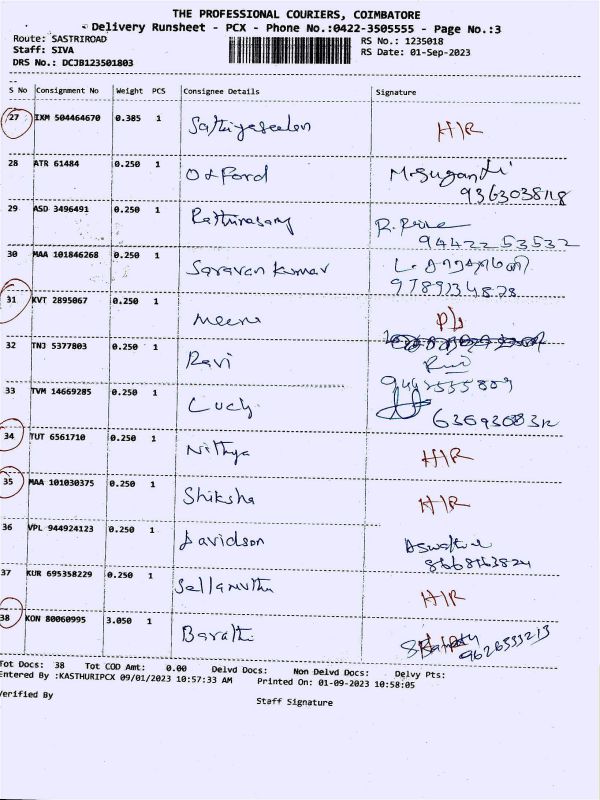 THE PROFESSIONAL COURIERS, COIMBATORE
Delivery Runsheet - PCX - Phone No.:0422-3505555 - Page No.:3
Route: SASTRIROAD RS No.: 1235018
Staff: SIVA RS Date: 01-Sep-2023
DRS No.: DCJB123501803
S No Consignment No Weight PCS Consignee Details Signature
27 IXM 504464670 0.385 1 H/R
28 ATR 61484 0.250 1 Oxford M.Suganthi
9363038118
29 ASD 3496491 0.250 1 R.
94422 53532
30 MAA 101846268 0.250 1 Saravan kumar
31 KVT 2895067 0.250 1 Meena D/L
32 TNJ 5377803 0.250 1 Ravi
9442535809
33 TVM 14669285 0.250 1 Lucky
6369308312
34 TUT 6561710 0.250 1 Nithya H/R
35 MAA 101030375 0.250 1 Shiksha H/R
36 VPL 944924123 0.250 1 Davidson
37 KUR 695358229 0.250 1 Sellamuthu H/R
38 KON 80060995 3.050 1 Barathi
9626533213
Tot Docs: 38 Tot COD Amt: 0.00 Delvd Docs: Non Delvd Docs: Delvy Pts:
Entered By :KASTHURIPCX 09/01/2023 10:57:33 AM Printed On: 01-09-2023 10:58:05
Verified By Staff Signature